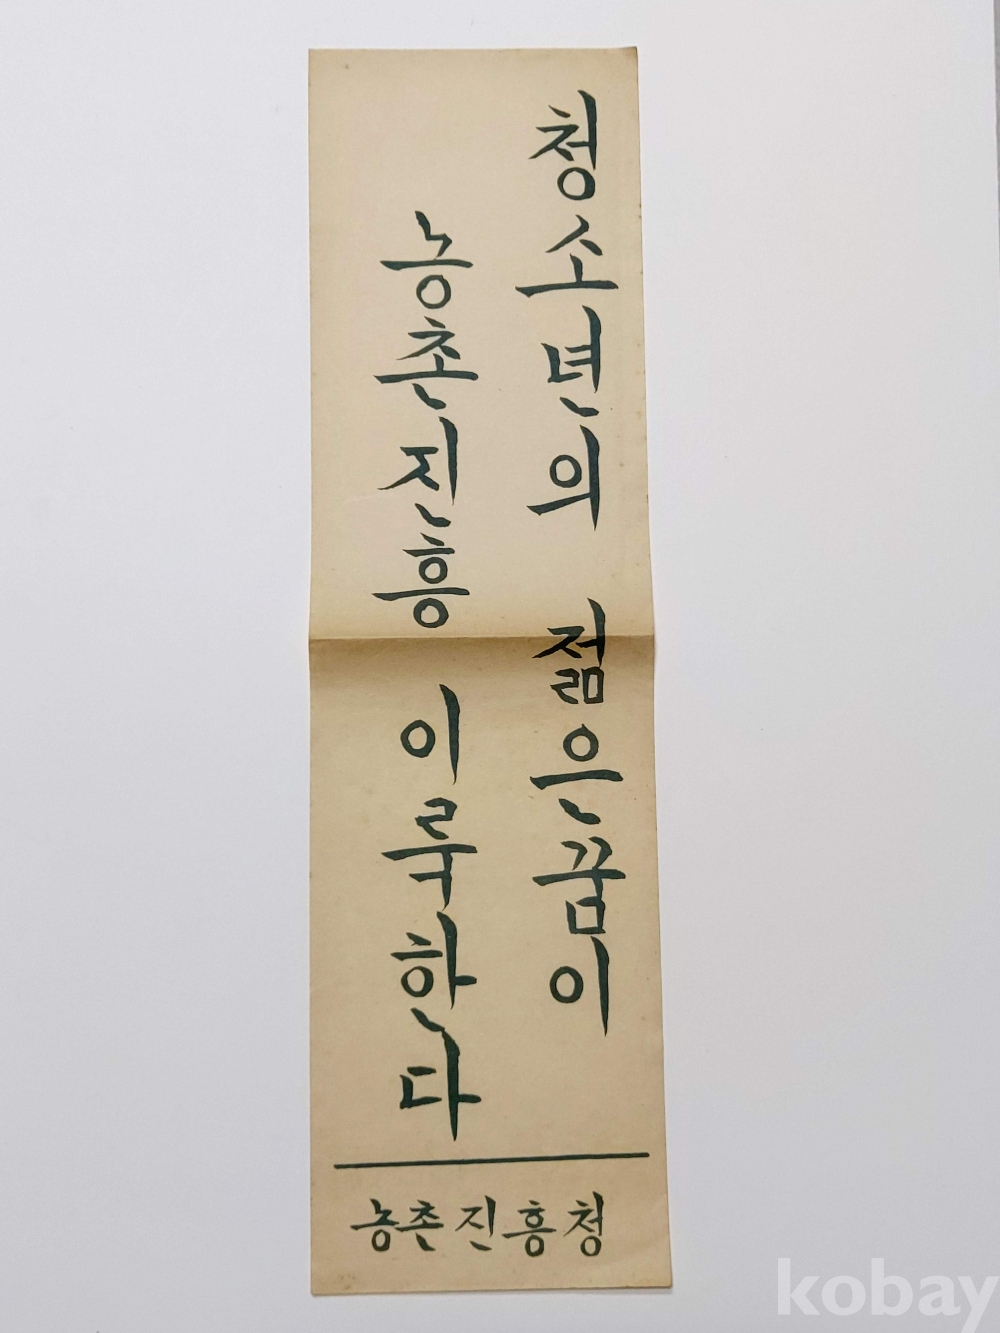 청소년의 젊은꿈이
농촌진흥 이룩한다
농촌진흥청
kobay